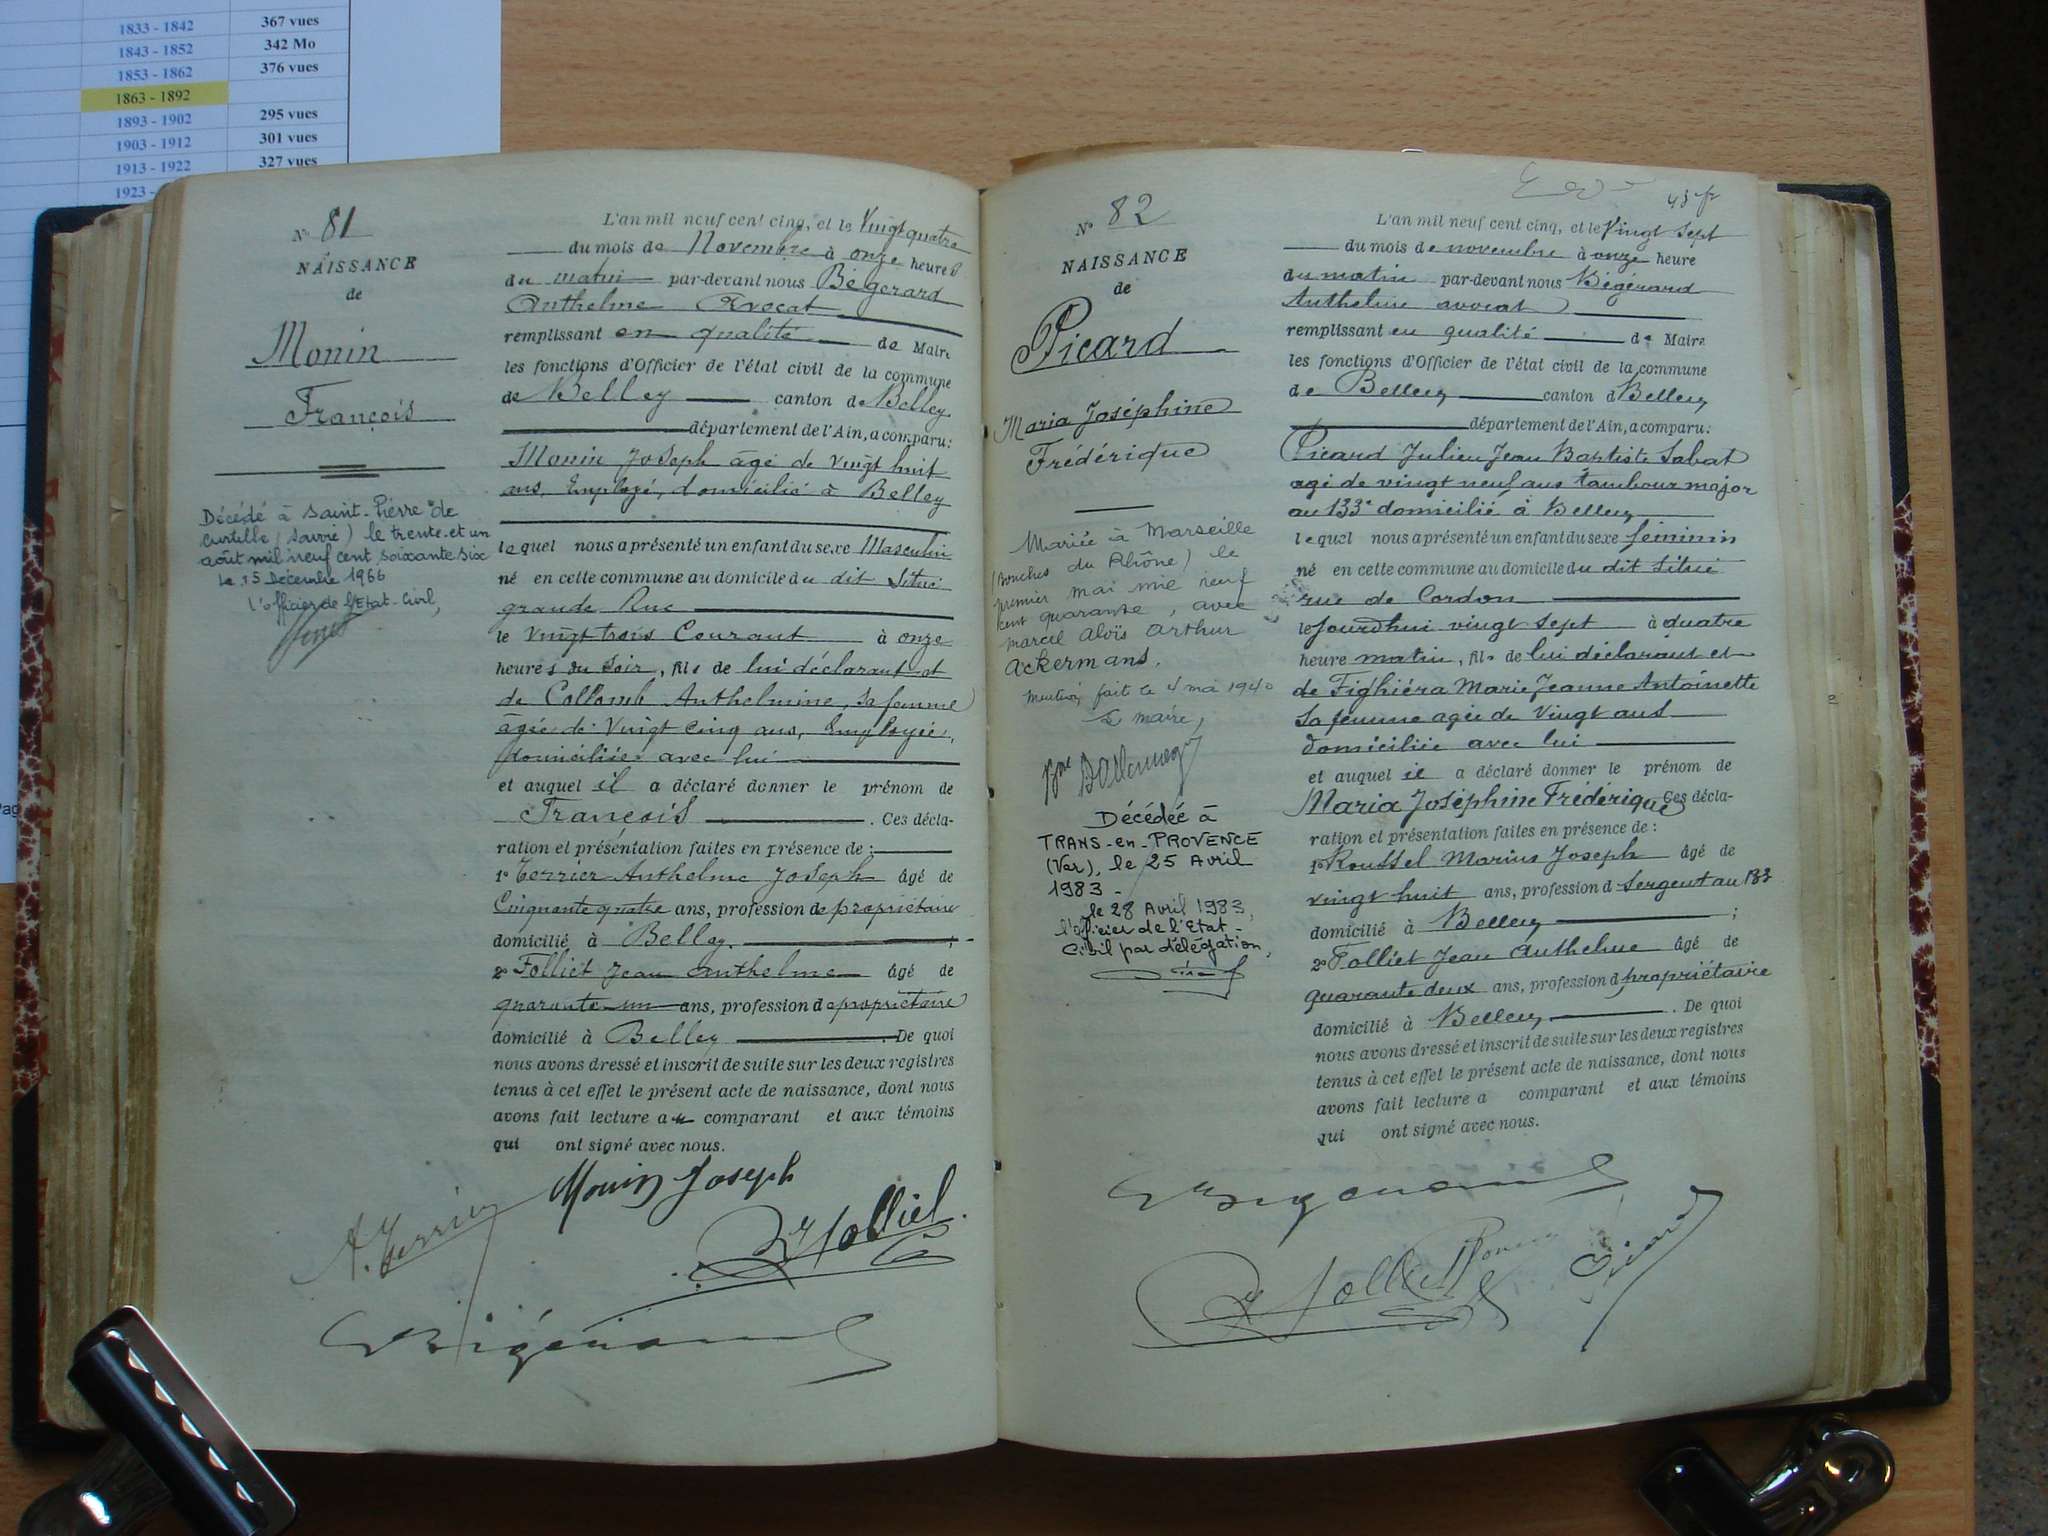 1833 - 1842 367 vues
1843 - 1852 342 Mo
1853 - 1862 376 vues
1863 - 1892
1893 - 1902 295 vues
1903 - 1912 301 vues
1913 - 1922 327 vues
1923 -
N° 81
NAISSANCE
de
Monin
François
Décédé à Saint-Pierre de
Curtille (Savoie) le trente et un
août mil neuf cent soixante six
Le 15 Décembre 1966
l'officier de l'Etat-Civil,
L'an mil neuf cent cinq, et le Vingt quatre
du mois de Novembre à onze heures
du matin par-devant nous Bégérard
Anthelme Avocat
remplissant en qualité de Maire
les fonctions d'Officier de l'état civil de la commune
de Belley canton de Belley
département de l'Ain, a comparu:
Monin Joseph âgé de vingt huit
ans, Employé, domicilié à Belley
lequel nous a présenté un enfant du sexe Masculin
né en cette commune au domicile du dit Situé
grande Rue
le Vingt trois Courant à onze
heures du Soir, fils de lui déclarant et
de Collomb Anthelmine, sa femme
âgée de Vingt cinq ans, Employée,
domiciliée avec lui
et auquel il a déclaré donner le prénom de
François . Ces décla-
ration et présentation faites en présence de :
1° Terrier Anthelme Joseph âgé de
Cinquante quatre ans, profession de propriétaire
domicilié à Belley ;
2° Folliet Jean Anthelme âgé de
quarante un ans, profession de propriétaire
domicilié à Belley . De quoi
nous avons dressé et inscrit de suite sur les deux registres
tenus à cet effet le présent acte de naissance, dont nous
avons fait lecture au comparant et aux témoins
qui ont signé avec nous.
Monin Joseph
A. Terrier
Folliet
Bégérard
N° 82
NAISSANCE
de
Picard
Maria Joséphine
Frédérique
Mariée à Marseille
(Bouches du Rhône) le
premier mai mil neuf
cent quarante, avec
Marcel Aloïs Arthur
Ackermans.
Mention fait le 4 mai 1940
Le maire,
Décédée à
TRANS-en-PROVENCE
(Var), le 25 Avril
1983 -
le 28 Avril 1983,
l'officier de l'Etat-
Civil par délégation,
L'an mil neuf cent cinq, et le Vingt sept
du mois de novembre à onze heure
du matin par-devant nous Bégérard
Anthelme avocat
remplissant en qualité de Maire
les fonctions d'Officier de l'état civil de la commune
de Belley canton d Belley
département de l'Ain, a comparu:
Picard Julien Jean Baptiste Sabat
agé de vingt neuf ans tambour major
au 133e domicilié à Belley
lequel nous a présenté un enfant du sexe féminin
né en cette commune au domicile du dit situé
rue de Cordon
le jourd'hui vingt sept à quatre
heure matin, fils de lui déclarant et
de Fighiéra Marie Jeanne Antoinette
sa femme agée de Vingt ans
domiciliée avec lui
et auquel il a déclaré donner le prénom de
Maria Joséphine Fréderique Ces décla-
ration et présentation faites en présence de :
1° Roussel Marius Joseph âgé de
vingt huit ans, profession d Sergent au 133
domicilié à Belley ;
2° Folliet Jean Anthelme âgé de
quarante deux ans, profession d propriétaire
domicilié à Belley . De quoi
nous avons dressé et inscrit de suite sur les deux registres
tenus à cet effet le présent acte de naissance, dont nous
avons fait lecture a comparant et aux témoins
qui ont signé avec nous.
Bégérard
Folliet
Picard